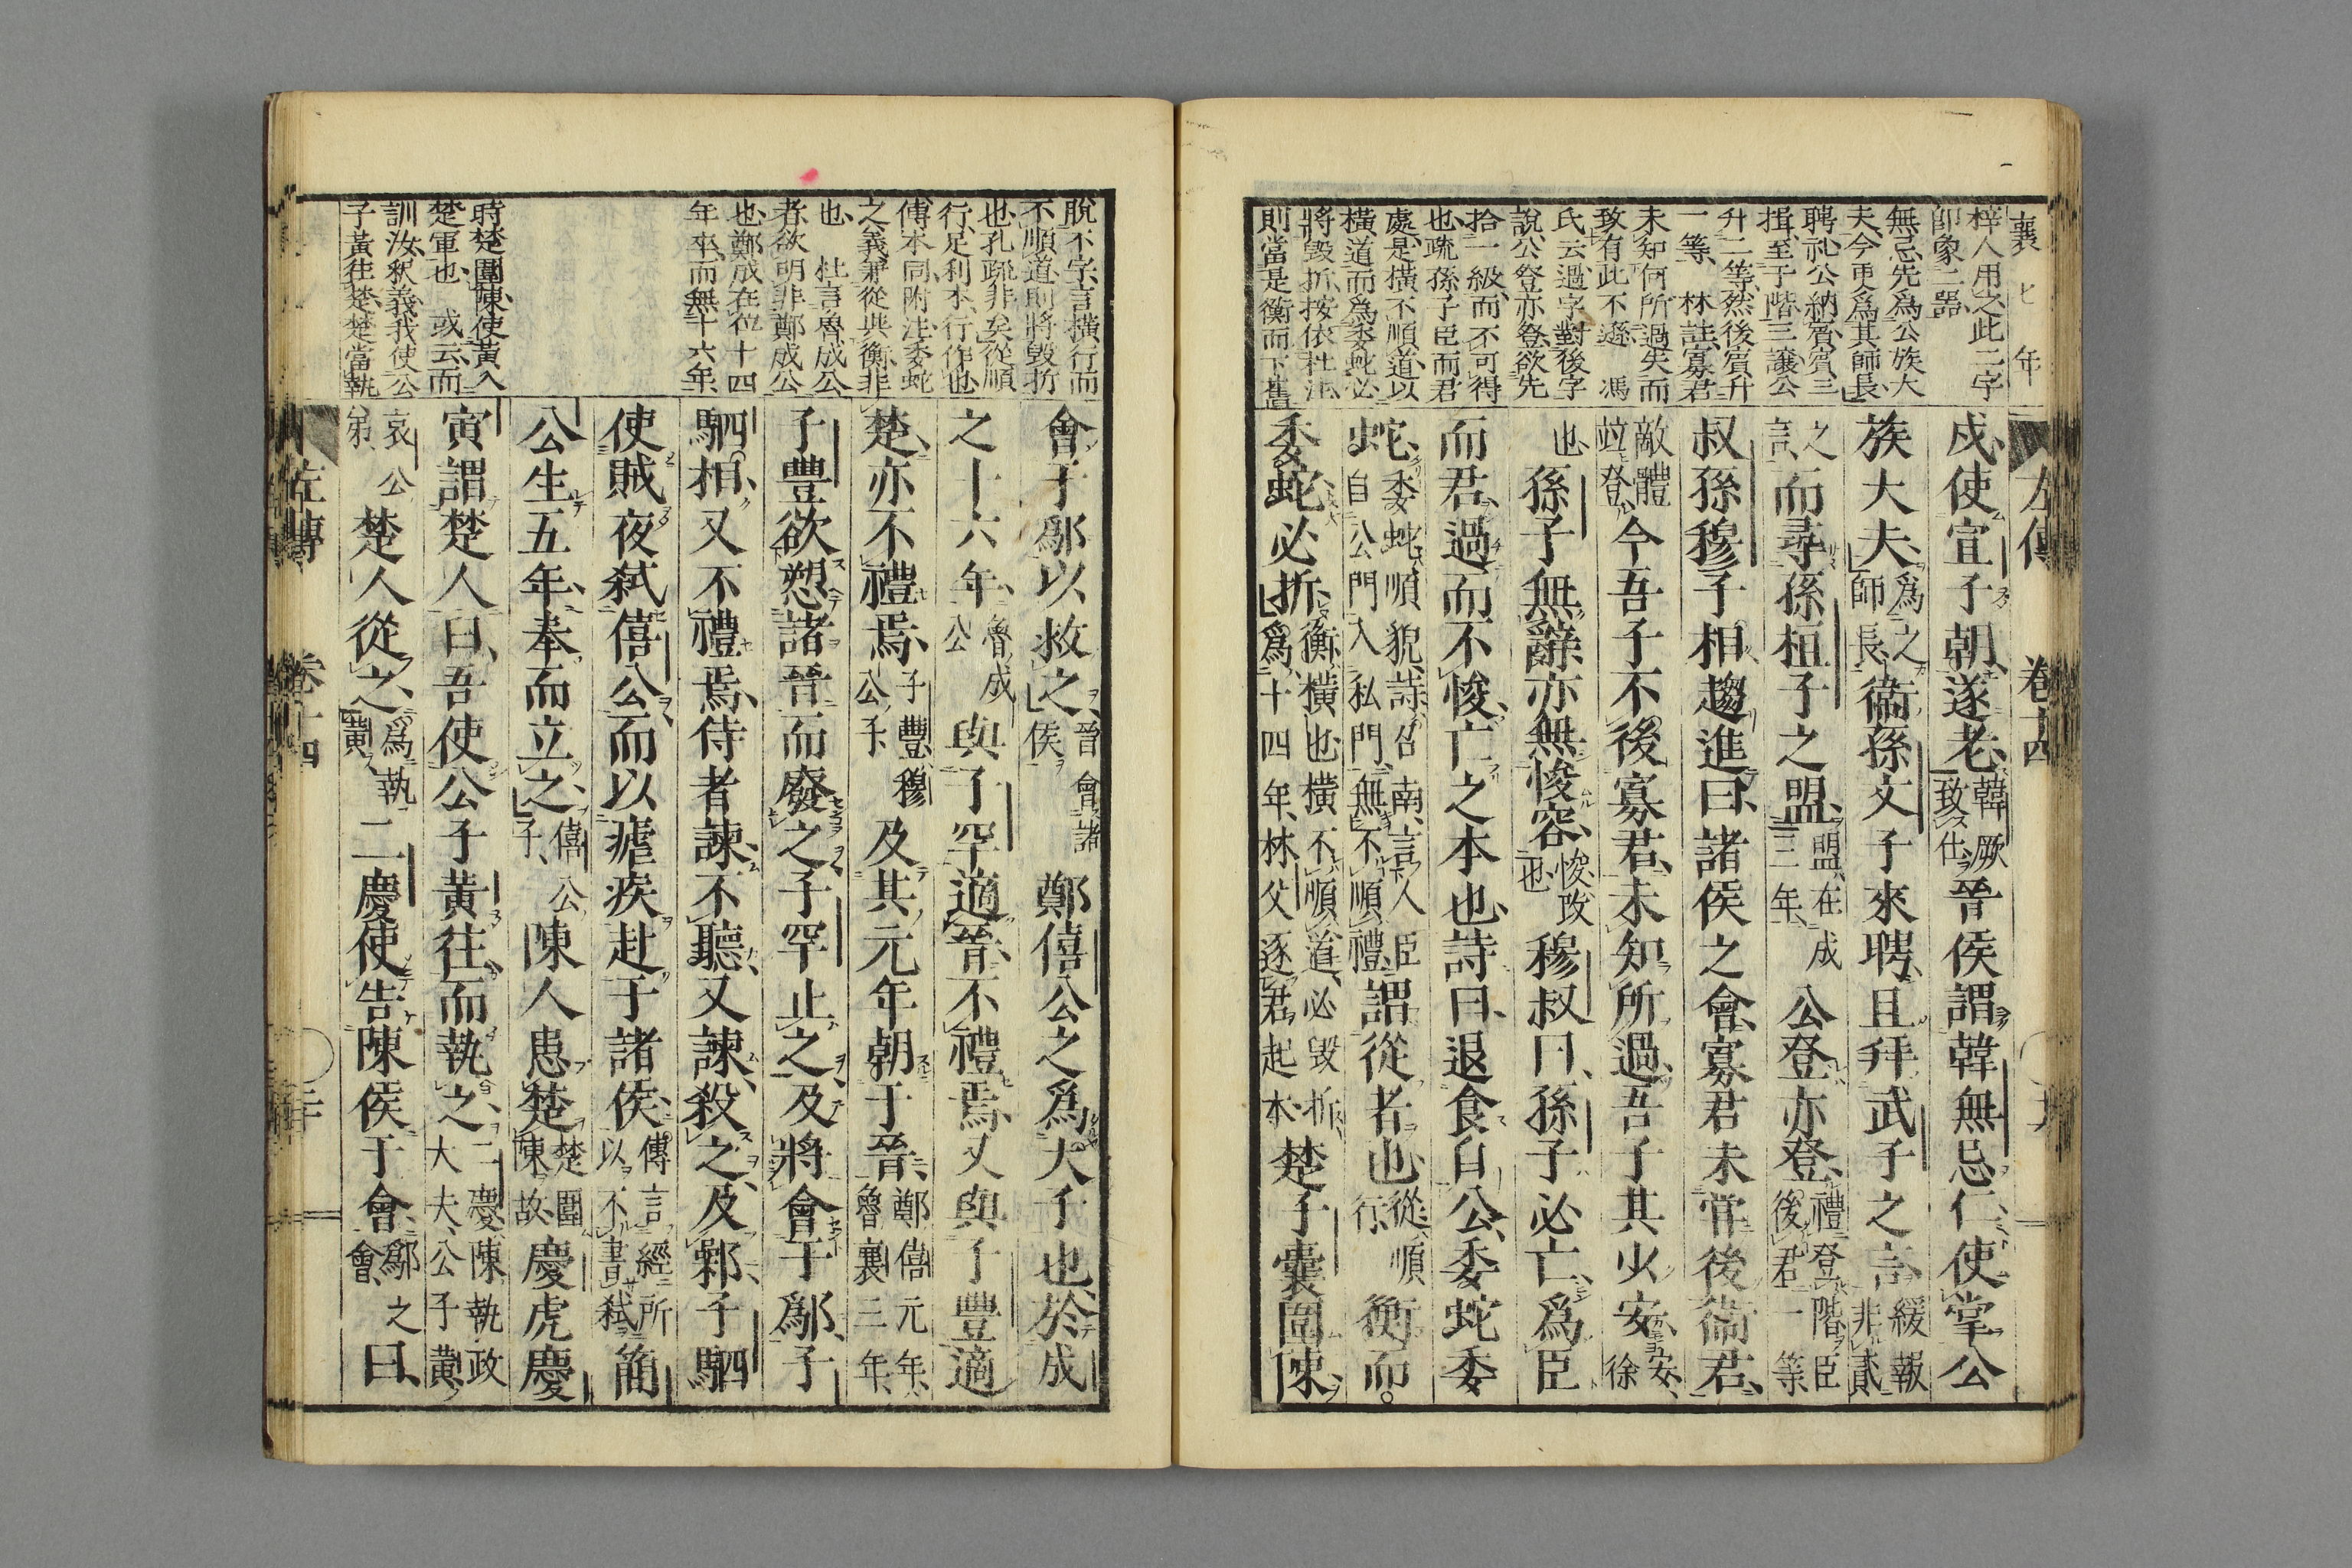 襄七年
梓人用之此二字
卽衆二器
無忌先爲公族大
夫今更爲其師長
聘礼公納賓賓三
揖至于階三讓公
升二等然後賓升
一等 林註寡君
未知何所過失而
致有此不遜 馮
氏云過字對後字
說公登亦登欲先
拾一級而不可得
也疏孫子臣而君
處是橫不順道以
橫道而爲委蛇必
將毀折按依杜注
則當是衡而下舊
左傳 卷十四
戍使宣子朝遂老韓厥致仕晉侯謂韓無忌仁使掌公
族大夫爲之師長衞孫文子來聘且拜武子之言緩報非貳
之言而尋孫桓子之盟盟在成三年公登亦登禮登階臣後君一等
叔孫穆子相趨進曰諸侯之會寡君未嘗後衞君
敵體竝登今吾子不後寡君未知所過吾子其少安安徐
也孫子無辭亦無悛容悛改也穆叔曰孫子必亡爲臣
而君過而不悛亡之本也詩曰退食自公委蛇委
蛇委蛇順貌詩召南言人臣自公門入私門無不順禮謂從者也從順行衡而
委蛇必折衡橫也橫不順道必毀折爲十四年林父逐君起本楚子囊圍陳
脫不字言橫行而
不順道則將毀折
也孔疏非矣從順
行足利本行作也
傳本同附注委蛇
之義兼從與衡非
也 杜言魯成公
者欲明非鄭成公
也鄭成在位十四
年卒而無十六年
時楚圍陳使黃入
楚軍也 或云而
訓汝釈義我使公
子黃往楚楚當執
會于鄬以救之晉會諸侯鄭僖公之爲大子也於成
之十六年魯成公與子罕適晉不禮焉又與子豐適
楚亦不禮焉子豐穆公子及其元年朝于晉鄭僖元年魯襄三年
子豐欲愬諸晉而廢之子罕止之及將會于鄬子
駟相又不禮焉侍者諫不聽又諫殺之及鄵子駟
使賊夜弒僖公而以瘧疾赴于諸侯傳言經所以不書弒簡
公生五年奉而立之僖公子陳人患楚楚圍陳故慶虎慶
寅謂楚人曰吾使公子黃往而執之二慶陳執政大夫公子黃
哀公弟楚人從之爲執黃二慶使告陳侯于會鄬之會曰
左傳 卷十四